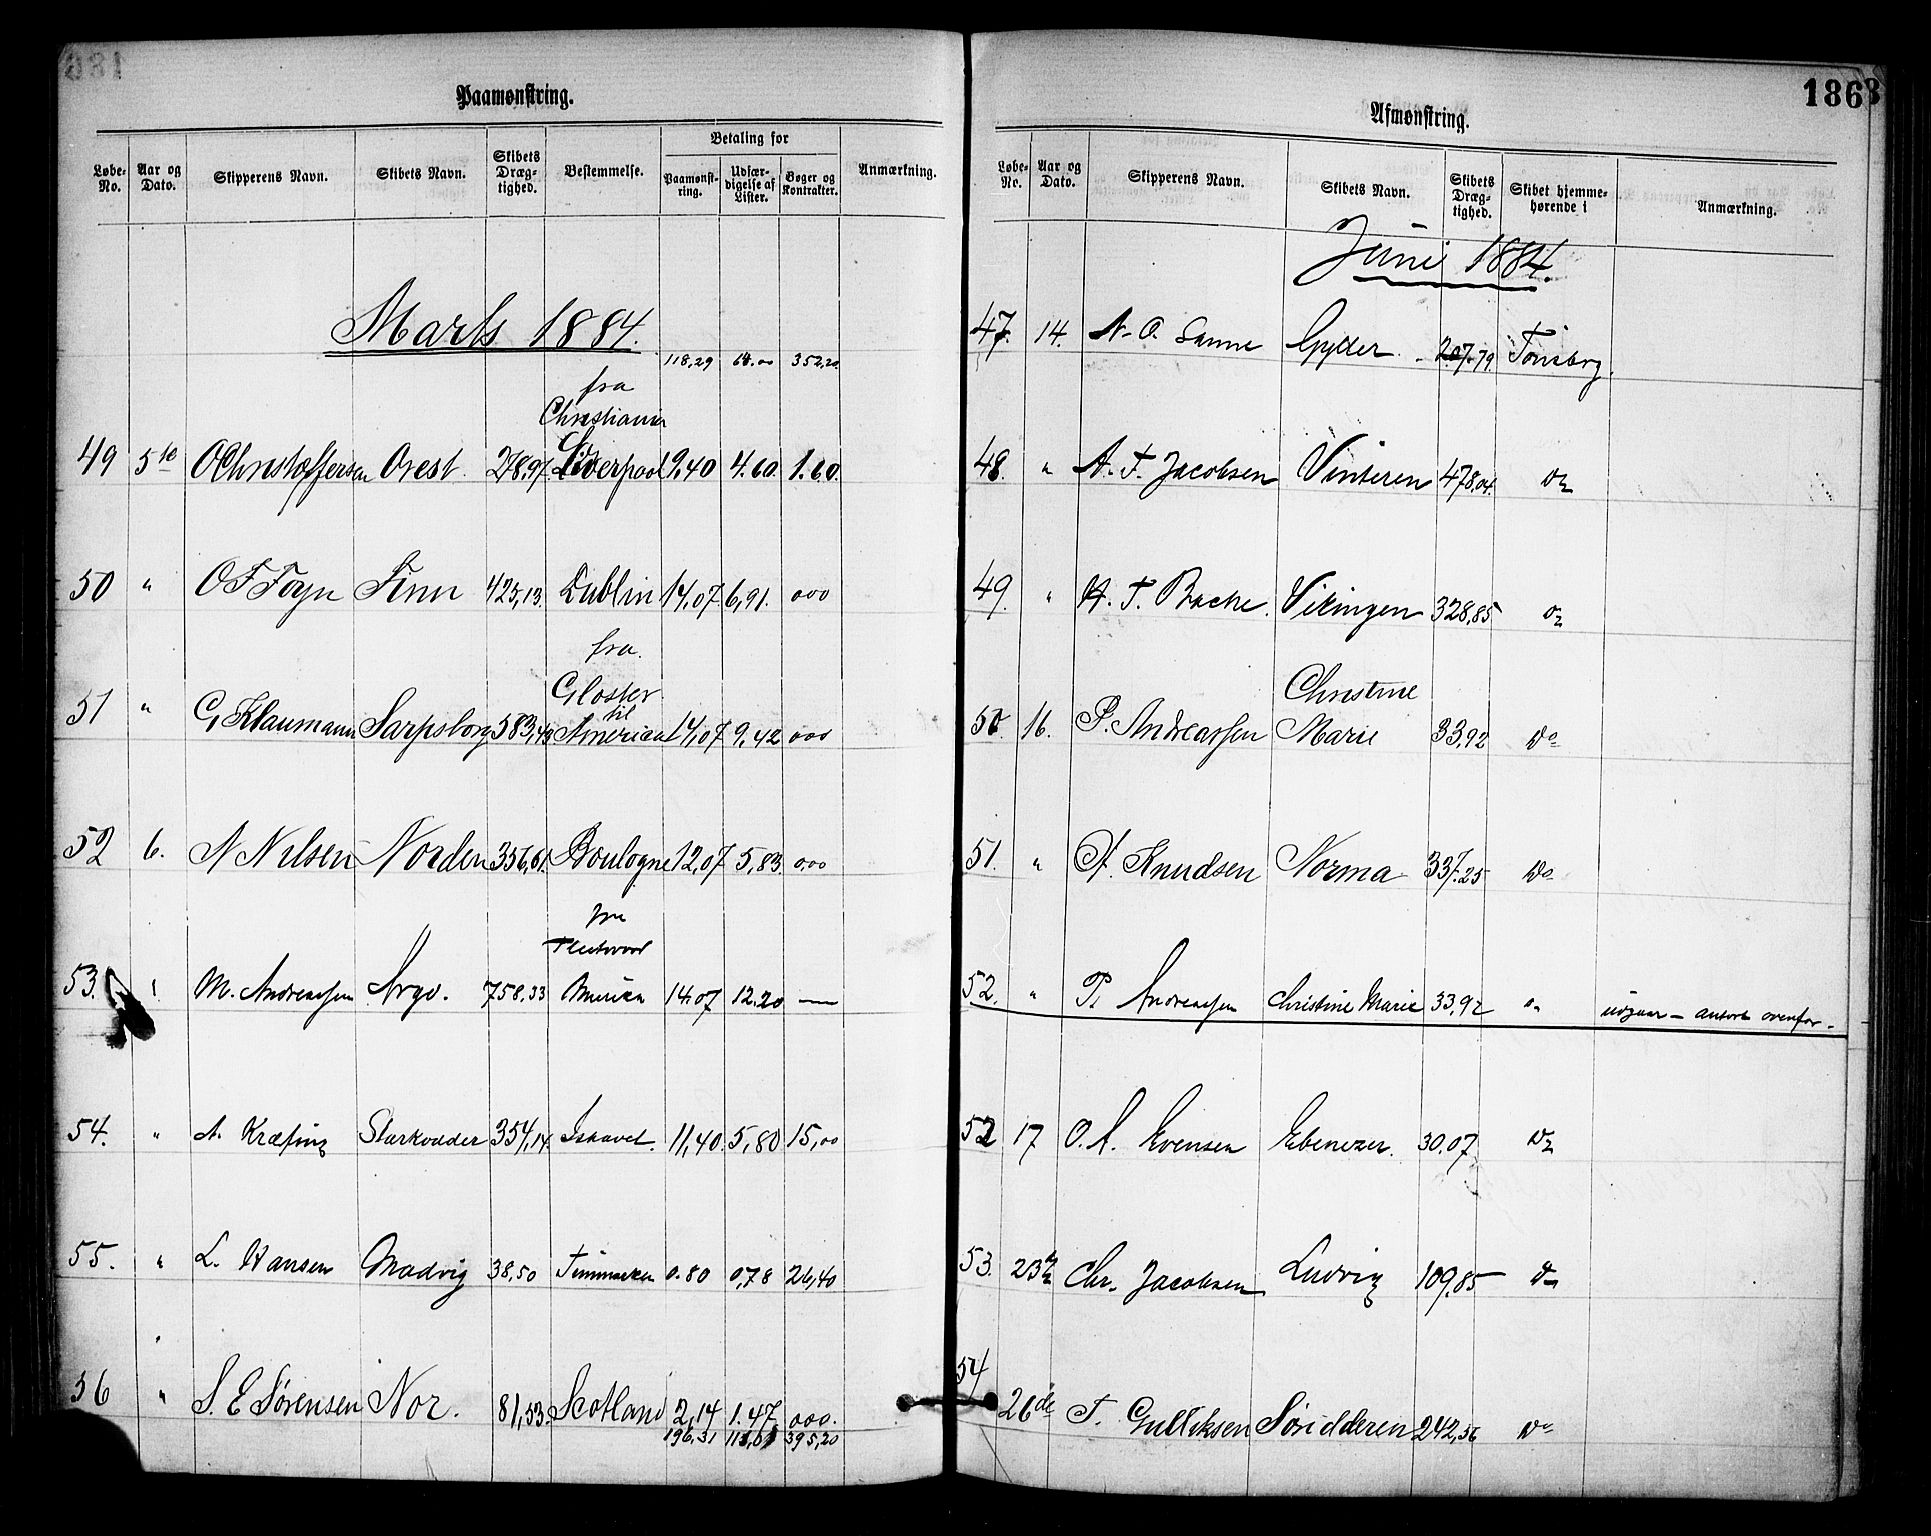 Paamønstring.
Løbe-No. Aar og Dato. Skipperens Navn. Skibets Navn. Skibets Dræg-tighed. Bestemmelse. Betaling for Paamønst-ring. Udfær-digelse af Lister. Bøger og Kontrakter. Anmærkning.
Marts 1884.
118,29 64.00 352,20
fra
Christiania
49 5te O Christoffersen Orest. 278,97 Liverpool 9,40 4.60. 1.60.
50 " O F Foyn Finn 425,13. Dublin 14,07 6,91. 000
fra.
Gloster
til
51 " G Klaumann Sarpsborg 583,43 America 14,07 9,42 000
52 6. N Nilsen Norden 356,61. Boulogne 12,07 5,83. 0,00
fra
Fleetwood
53. " M. Andreasen Argo. 758,33 Amerika 14.07 12.20 —
54. " A. Kræfting Starkodder 354,14 Ishavet. 11,40. 5,80 15,00
55. " L. Hansen Madvig 38,50 0.80 0,78 26,40
56 " S. E Sørensen Nor. 81,53 Scotland 2,14 1.47 000.
196,31 111,01 395,20
1863
Afmønstring.
Løbe-No. Aar og Dato. Skipperens Navn. Skibets Navn. Skibets Dræg-tighed. Skibet hjemme-hørende i Anmærkning.
Juni 1884.
47. 14. N. O. Sanne Gylder 207.79 Tønsbrg.
48. " A. F. Jacobsen Vinteren 478,04. Do
49. " H. F. Bache. Vikingen 328,85 Do
Christine
50. 16. P. Andreassen Marie 33,92 Do
51. " A. Knudsen Norma 337.25 Do
52. " P. Andreassen Christine Marie 33,92 " udgaar – anført ovenfor.
52 17 O. A. Evensen Ebenezer. 30.07 Do
53. 23de Chr. Jacobsen Ludvig 109.85 Do
54
26de T. Gulliksen Søridderen 242,56 Do